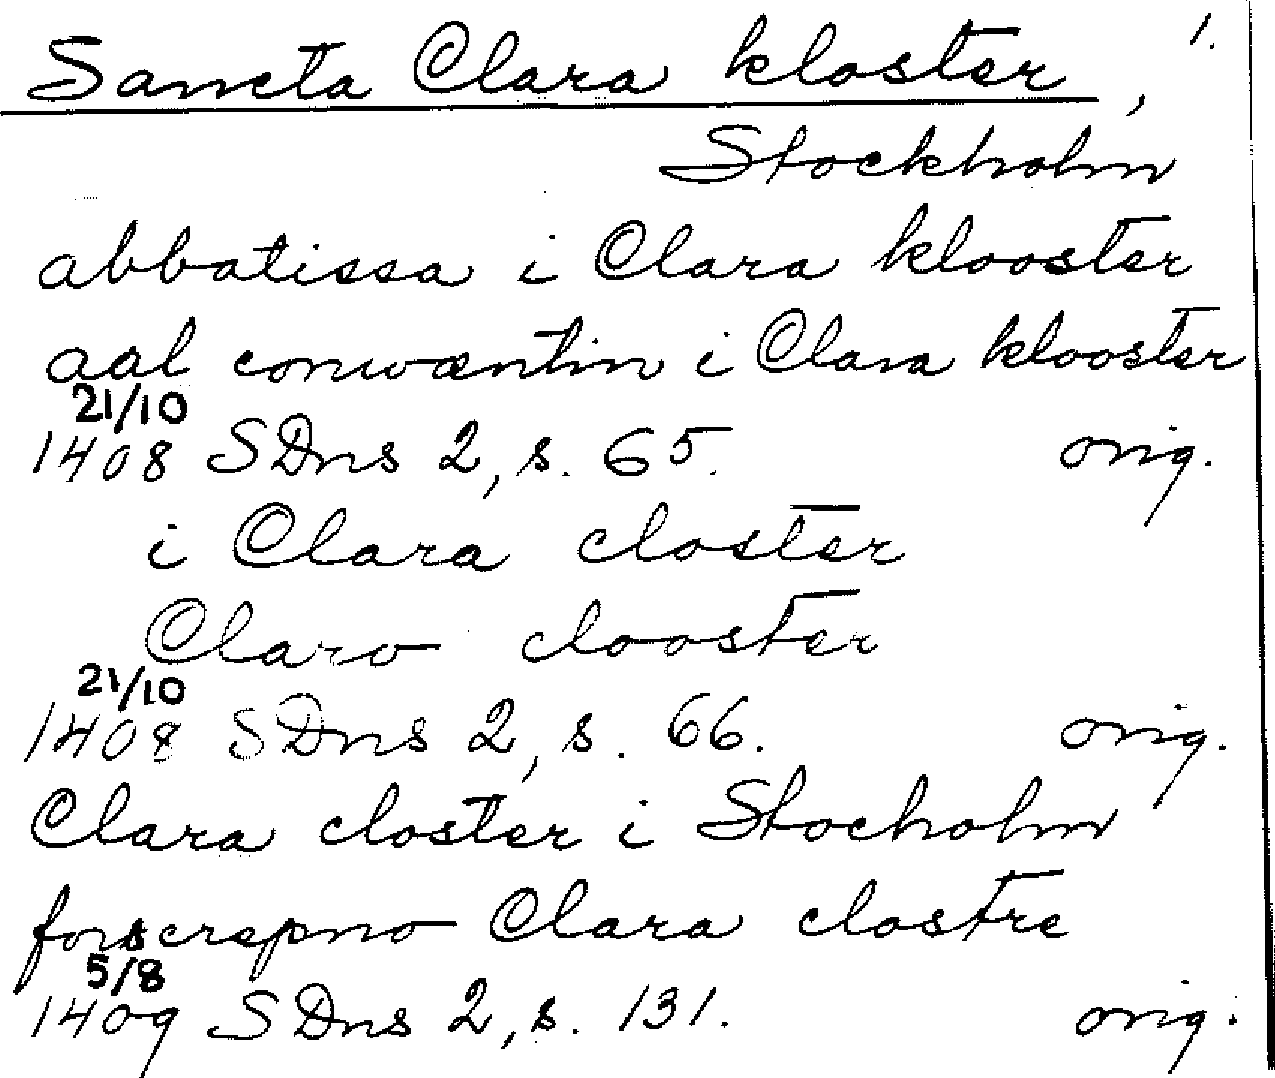 1.
Sancta Clara kloster,
Stockholm
abbatissa i Clara klooster
aal conwæntin i Clara klooster
21/10
1408 SDns 2, s. 65. orig.
i Clara closter
Claro clooster
21/10
1408 SDns 2, s. 66. orig.
Clara closter i Stocholm
forscrepno Clara clostre
5/8
1409 SDns 2, s. 131. orig.